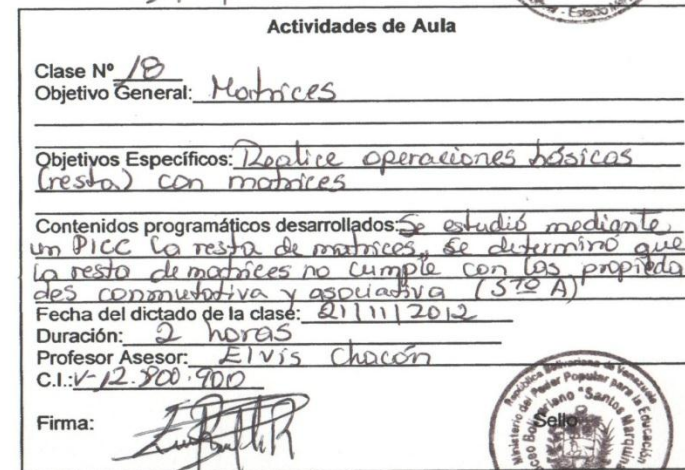 Actividades de Aula
Clase Nº 18
Objetivo General: Matrices
Objetivos Específicos: Realice operaciones básicas
(resta) con matrices
Contenidos programáticos desarrollados: Se estudió mediante
un PICC la resta de matrices, se determinó que
la resta de matrices no cumple con las propieda
des conmutativa y asociativa (5to A)
Fecha del dictado de la clase: 21/11/2012
Duración: 2 horas
Profesor Asesor: Elvis Chacón
C.I.: V-12.800.900
Firma:
Sello
República Bolivariana de Venezuela
Ministerio del Poder Popular para la Educación
"Santos Marquin